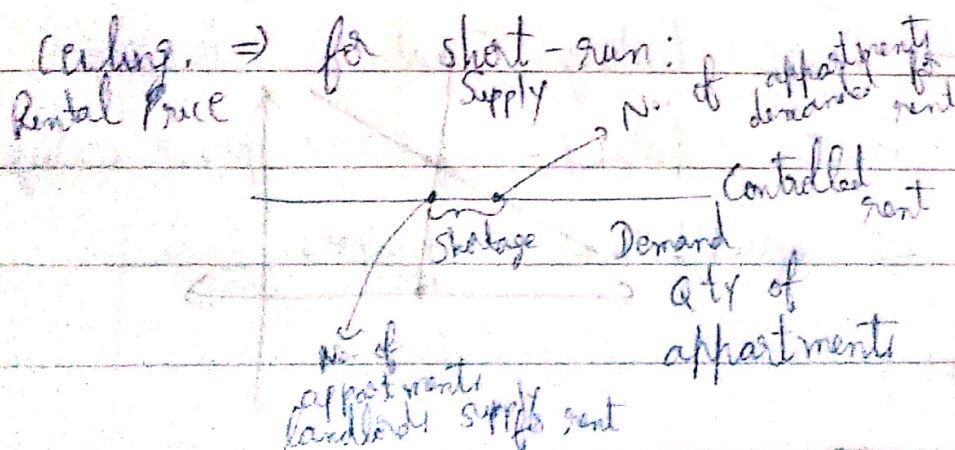 Ceiling. ⇒ for short-run:
Rental Price
Supply
No. of appartments
demanded for
rent
Controlled
rent
Shortage
Demand
Qty of
appartments
No. of
appartments
landlords supply for rent